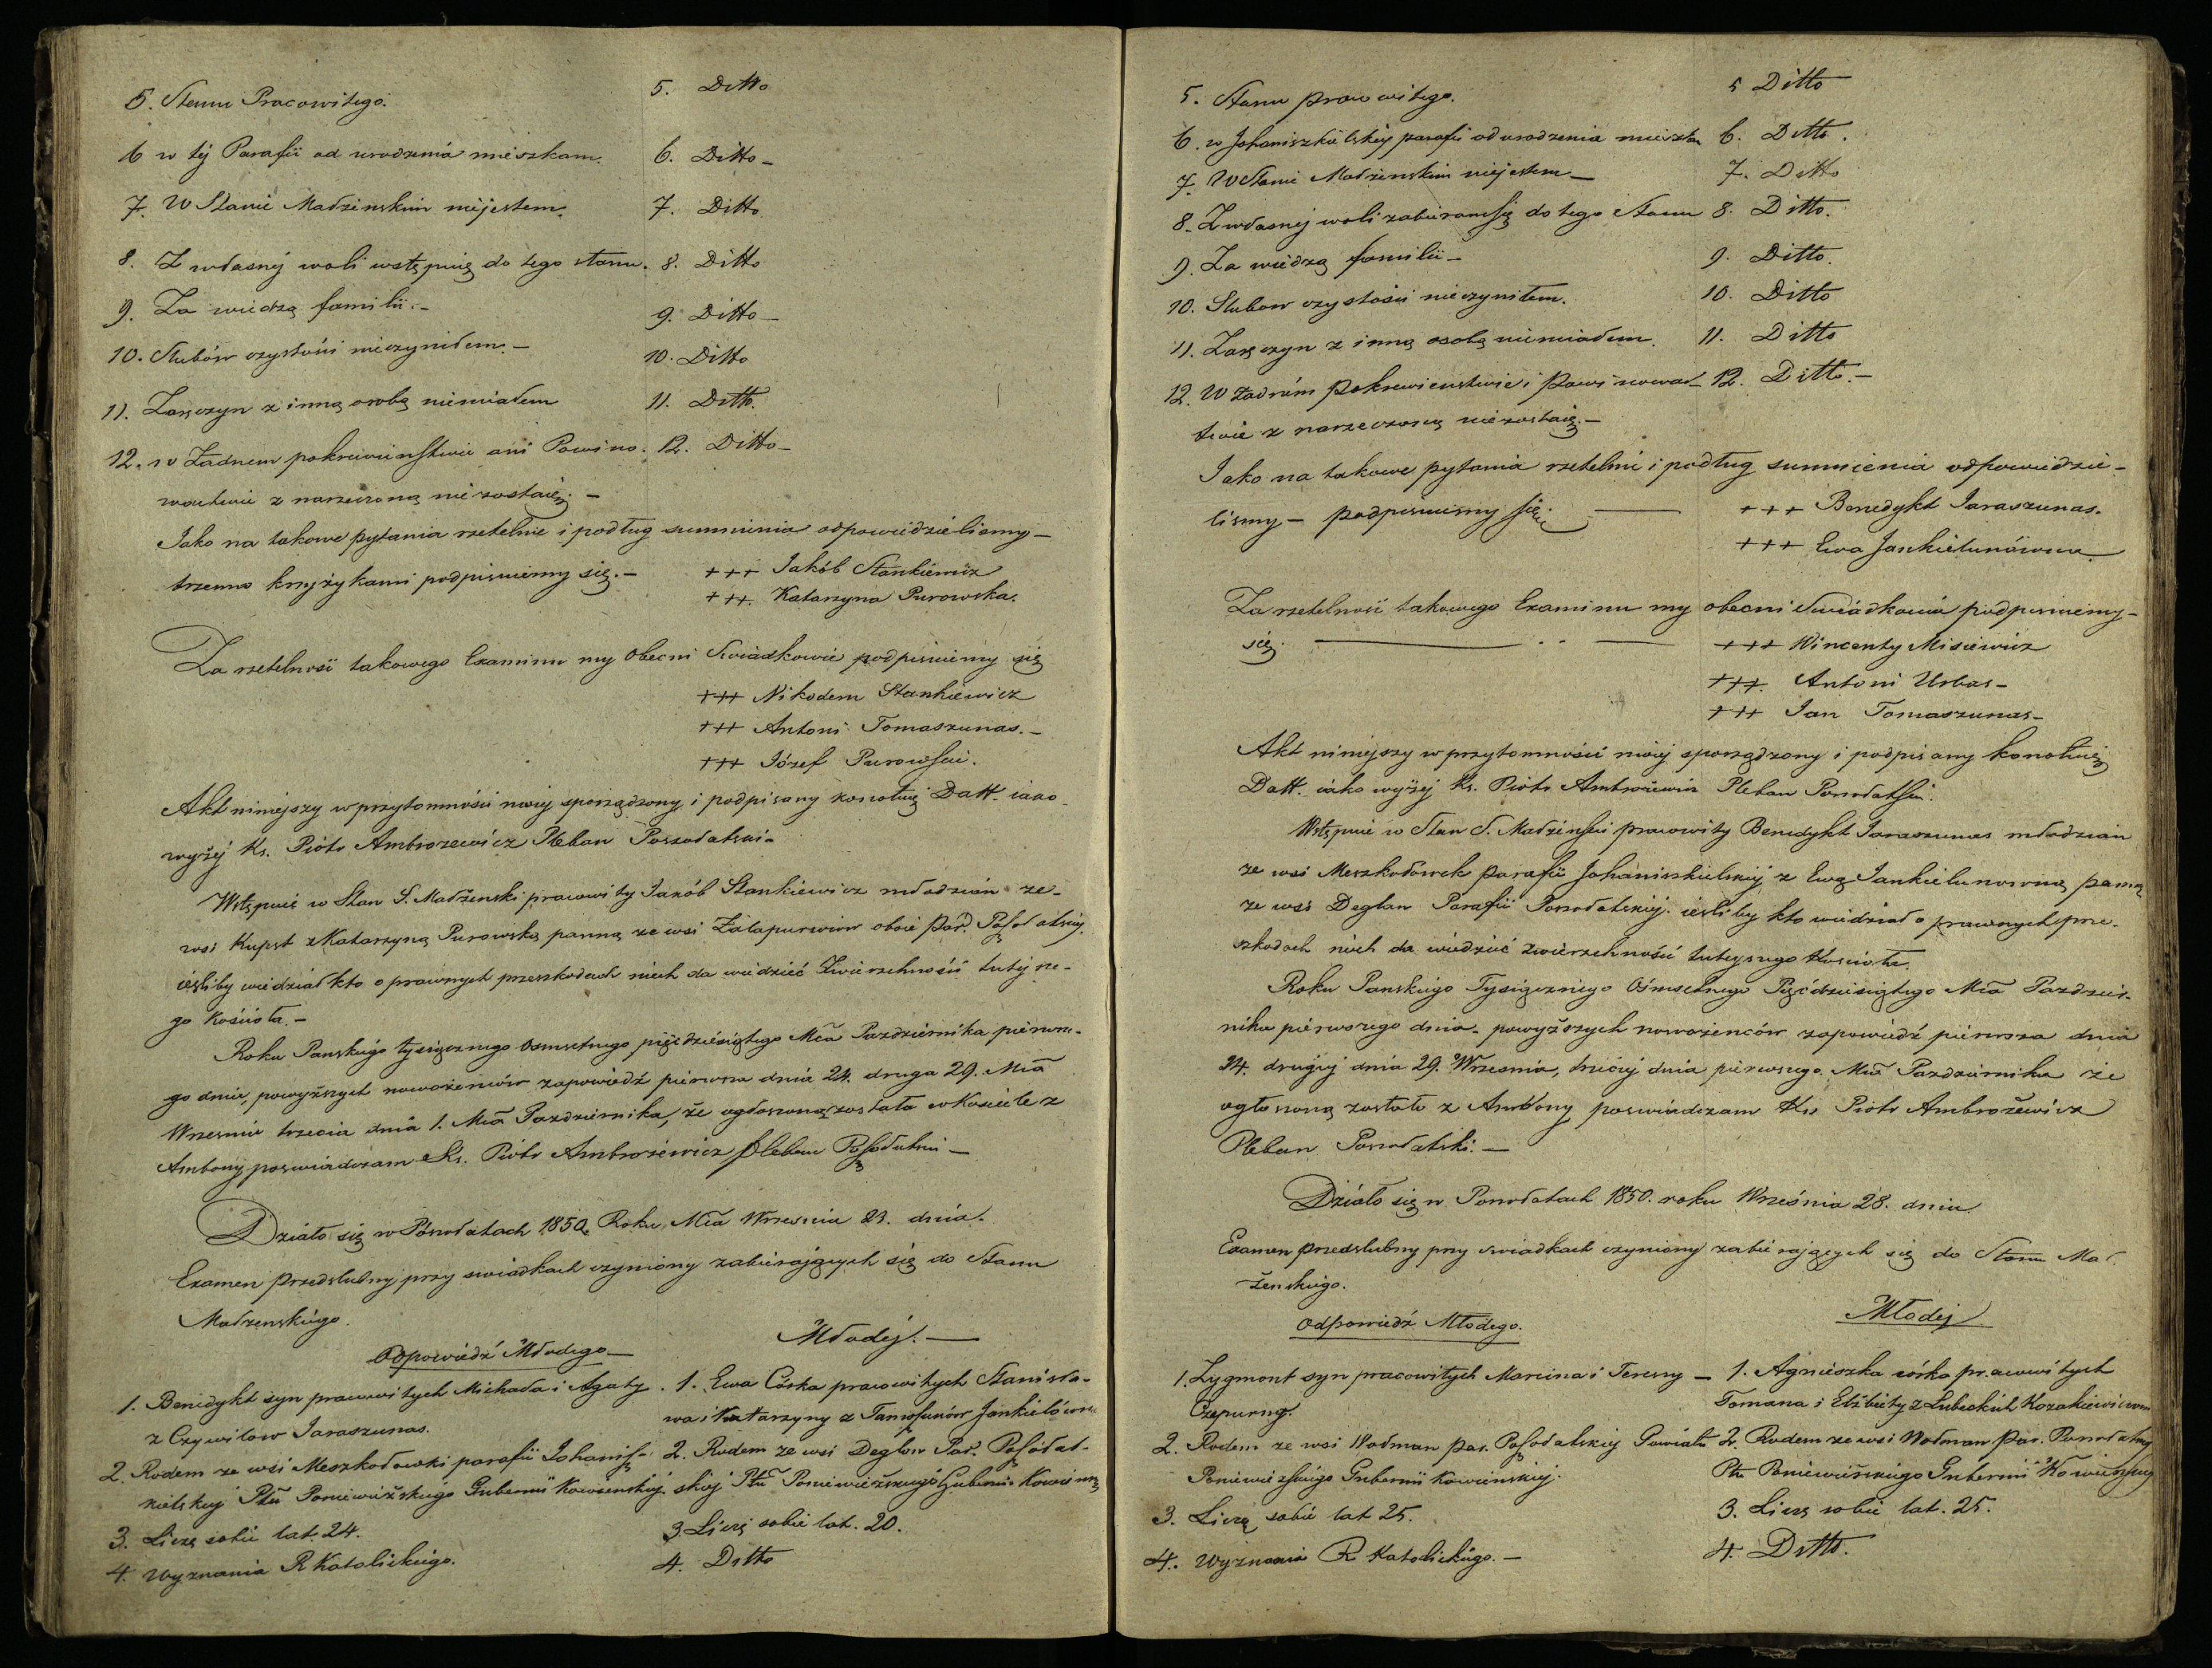 5. Stanu Pracowitego.
5. Ditto
6 w téj Parafii od urodzenia mieszkam.
6. Ditto –
7. W Stanie Małżenskim niejestem.
7. Ditto
8. Z własnéj woli wstępuię do tego stanu.
8. Ditto
9. Za wiedzą familii. –
9. Ditto –
10. Slubów czystości nieczyniłem. –
10. Ditto
11. Zaręczyn z inną osobą niemiałem
11. Ditto.
12. w Żadnem pokrewienstwie ani Powino-
12. Ditto –
wactwie z narzeczoną nie zostaię. –
Jako na takowe pytania rzetelnie i podług summienia odpowiedzieliśmy –
trzema krzyżykami podpisuiemy się. –
+++ Jakób Stankiewicz
+++. Katarzyna Purowska.
Za rzetelność takowego Examinu my Obecni Swiadkowie podpisuiemy się
+++ Nikodem Stankiewicz
+++ Antoni Tomaszunas. –
+++ Józef Purowski.
Akt niniejszy w przytomności moiéj sporządzony i podpisany konotuię Datt. iako
wyżéj Ks. Piotr Ambrożewicz Pleban Poszołatski –
Wstępuie w Stan S. Małżenski pracowity Jakób Stankiewicz młodzian ze –
wsi Kupst z Katarzyną Purowską panną ze wsi Zalapurwiow oboie par. Possołatskiéj.
ieśliby wiedział kto o prawnych przeszkodach niech da wiedzieć Zwierzchności tutéjsze-
go Kościoła. –
Roku Panskiego tysiącznego osmsetnego pięćdziesiątego Mca Pazdziernika pierwsze-
go dnia, powyższych nowożencow zapowiedź pierwsza dnia 24. druga 29. Mca
Wrzesnia trzecia dnia 1. Mca Pazdziernika, że ogłoszoną została w Kosciele z
Ambony poswiadczam Ks. Piotr Ambrożewicz Pleban Possołatski –
Działo się w Poszołatach 1850. Roku, Mca Wrzesnia 23. dnia.
Examen przedslubny przy swiadkach czyniony zabierających się do Stanu
Małzenskiego.
Odpowiedź Młodego –
Młodéj. –
1. Benedykt syn pracowitych Michała i Agaty
z Czywilow Jaraszunas.
2. Rodem ze wsi Meszkołowki parafii Johanisz-
kielskiej Ptu Poniewiżskiego Gubernii Kowienskiéj
3. Liczę sobie lat. 24.
4. Wyznania R Katolickiego.
1. Ewa Córka pracowitych Stanisła-
wa i Katarzyny z Janków Jankielówna
2. Rodem ze wsi Deglow Par. Possołat-
skiéj Ptu Poniewieżskiego Gubernii Kowieńskiej
3. Liczę sobie lat. 20.
4. Ditto
5. Stanu pracowitego.
5 Ditto
6. w Johaniszkielskiéj parafii od urodzenia mieszkam
6. Ditto.
7. W Stanie Małżenskim niejestem –
7. Ditto
8. Z własnéj woli zabieram się do tego Stanu
8. Ditto.
9. Za wiedzą familii –
9. Ditto.
10. Slubow czystości nieczyniłem.
10. Ditto
11. Zaręczyn z inną osobą niemiałem.
11. Ditto
12. W Żadném pokrewienstwie i powinowac-
12. Ditto. –
twie z narzeczoną niezostaię. –
Jako na takowe pytania rzetelnie i podług sumnienia odpowiedzie –
lismy – podpisuiemy się. –
+++ Benedykt Jaraszunas.
+++ Ewa Jankielunówna
Za rzetelność takowego Examinu my obecni Swiadkowie podpisuiemy –
się. –
+++ Wincenty Misiewicz
+++. Antoni Urbas –
+++ Jan Tomaszunas –
Akt niniejszy w przytomności moiéj sporządzony i podpisany konotuię
Datt. iako wyżéj Ks. Piotr Ambrożewicz Pleban Poszołatski.
Wstępuie w Stan S. Małżenski pracowity Benedykt Jaraszunas młodzian
ze wsi Meszkołówek Parafii Johaniszkielskiéj z Ewą Jankielunowną panną
ze wsi Deglow Parafii Poszołatskiéj. ieśliby kto wiedział o prawnych prze-
szkodach niech da wiedzieć Zwierzchności tutejszego Kościoła.
Roku Panskiego Tysiącznego Ośmsetnego Pięćdziesiątego Mca Pazdzier-
nika pierwszego dnia – powyższych nowożenców zapowiedź pierwsza dnia
24. drugiéj dnia 29. Wrzesnia, trzeciéj dnia pierwszego. Mca Pazdziernika że
ogłoszoną została z Ambony poswiadczam Ks Piotr Ambrożewicz
Pleban Poszołatski. –
Działo się w Poszołatach 1850. roku Wrzesnia 28. dnia.
Examen przedslubny przy swiadkach czyniony zabierających się do Stanu Mał-
żenskiego.
Odpowiedź Młodego.
Młodej
1. Zygmont syn pracowitych Marcina i Teressy –
Czepurng.
2. Rodem ze wsi Wodman par. Possołatskiéj Powiatu
Poniewieżskiego Gubernii Kowienskiéj.
3. Liczę sobie lat 25.
4. Wyznania R Katolickiego. –
1. Agnieszka córka pracowitych
Tomasza i Elżbiety z Lubeckich Kozakiewiczowna
2. Rodem ze wsi Wodman Par. Poszołatskiéj
Ptu Poniewieżskiego Gubernii Kowieńskiej
3. Liczę sobie lat. 25.
4. Ditto.